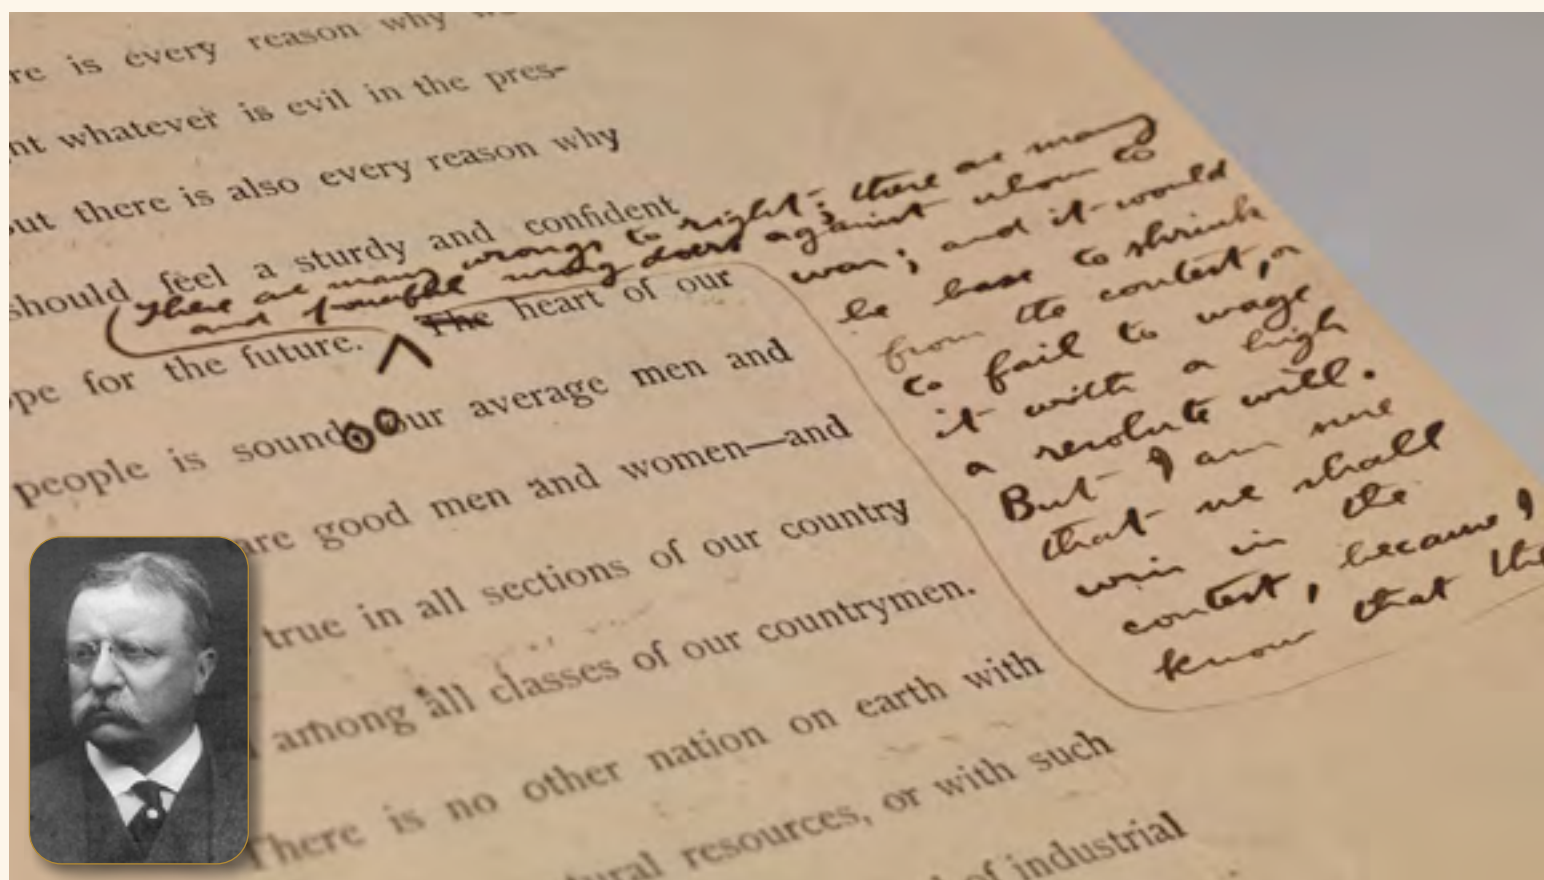 re is every reason why
nt whatever is evil in the pres-
but there is also every reason why
should feel a sturdy and confident
ope for the future. The heart of our
people is sound. Our average men and
are good men and women—and
true in all sections of our country
among all classes of our countrymen.
There is no other nation on earth with
ural resources, or with such
of industrial
There are many wrongs to right; there are many
and powerful wrong doers against whom to
war; and it would
be base to shrink
from the contest, or
to fail to wage
it with a high
a resolute will.
But I am sure
that we shall
win in the
contest, because I
know that the